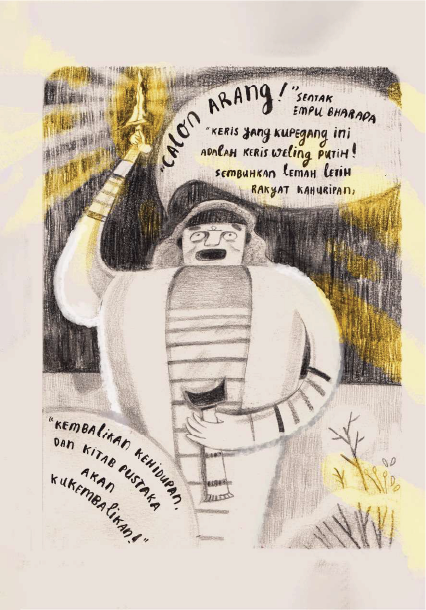 "CALON ARANG!" SENTAK
EMPU BHARADA
"KERIS YANG KUPEGANG INI
ADALAH KERIS WELING PUTIH!
SEMBUHKAN LEMAH LETIH
RAKYAT KAHURIPAN,
"KEMBALIKAN KEHIDUPAN,
DAN KITAB PUSTAKA
AKAN
KUKEMBALIKAN!"